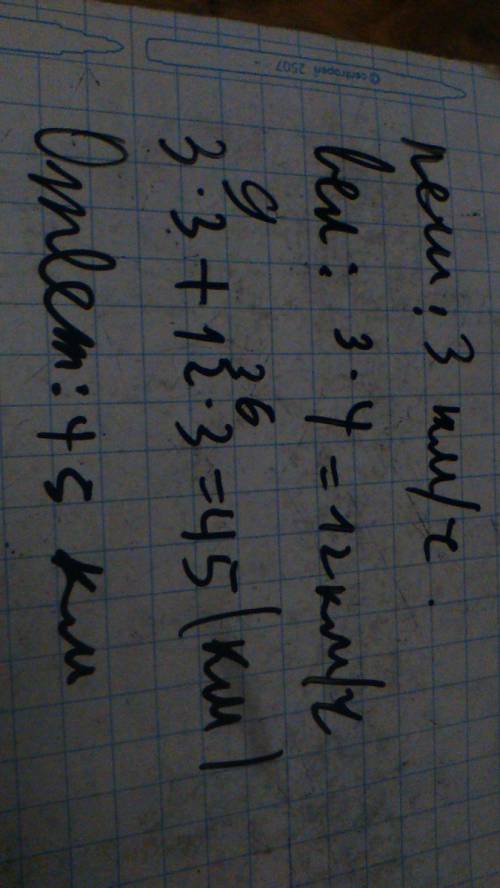 © centropen 2507
пеш: 3 км/ч.
вел: 3·4=12км/ч
9 36
3·3+12·3=45(км)
Ответ: 45 км